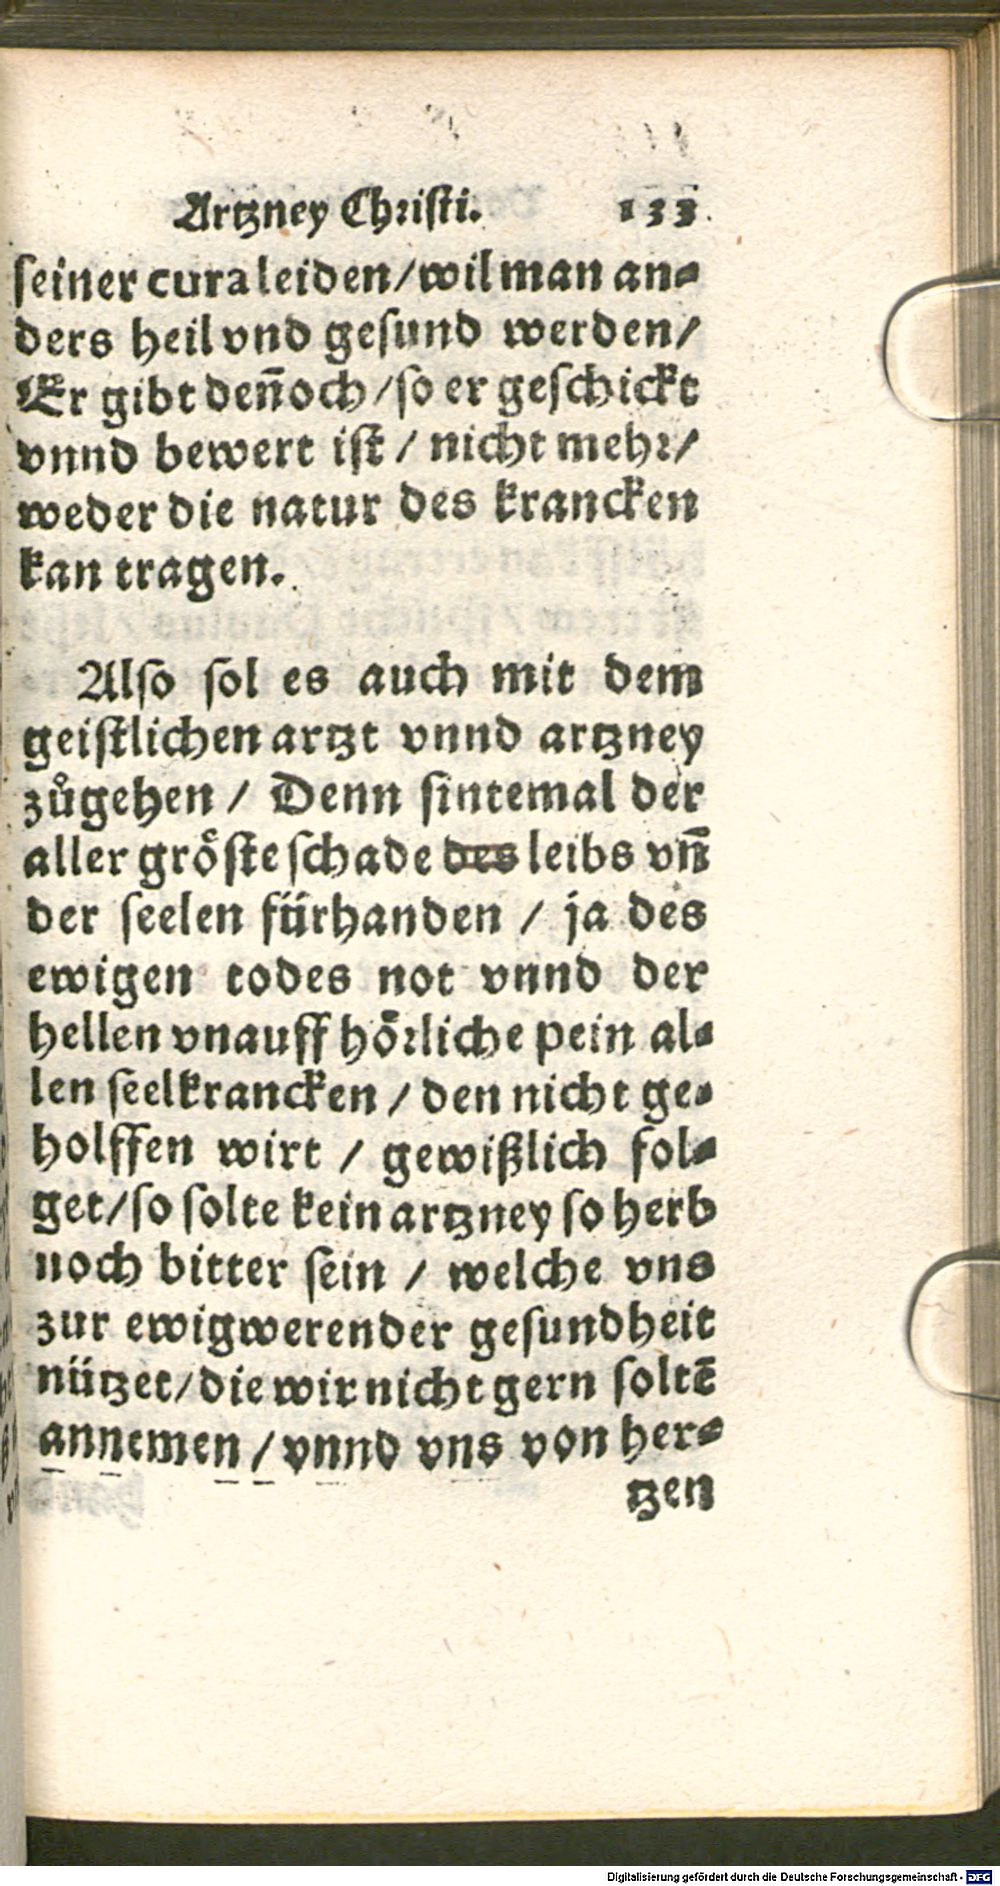 Artzney Christi. 133.
ſeiner cura leiden/wil man an⸗
ders heil vnd geſund werden/
Er gibt den̄och/ſo er geſchickt
vnnd bewert iſt / nicht mehꝛ/
weder die natur des krancken
kan tragen.
Alſo ſol es auch mit dem
geiſtlichen artzt vnnd artzney
zůgehen / Denn ſintemal der
aller gröſte ſchade des leibs vn̄
der ſeelen fürhanden / ja des
ewigen todes not vnnd der
hellen vnauffhöꝛliche pein al⸗
len ſeelkrancken / den nicht ge⸗
holffen wirt / gewißlich fol⸗
get/ſo ſolte kein artzney ſo herb
noch bitter ſein / welche vns
zur ewigwerender geſundheit
nützet/die wir nicht gern ſoltē
annemen / vnnd vns von her⸗
tzen
Digitalisierung gefördert durch die Deutsche Forschungsgemeinschaft - DFG